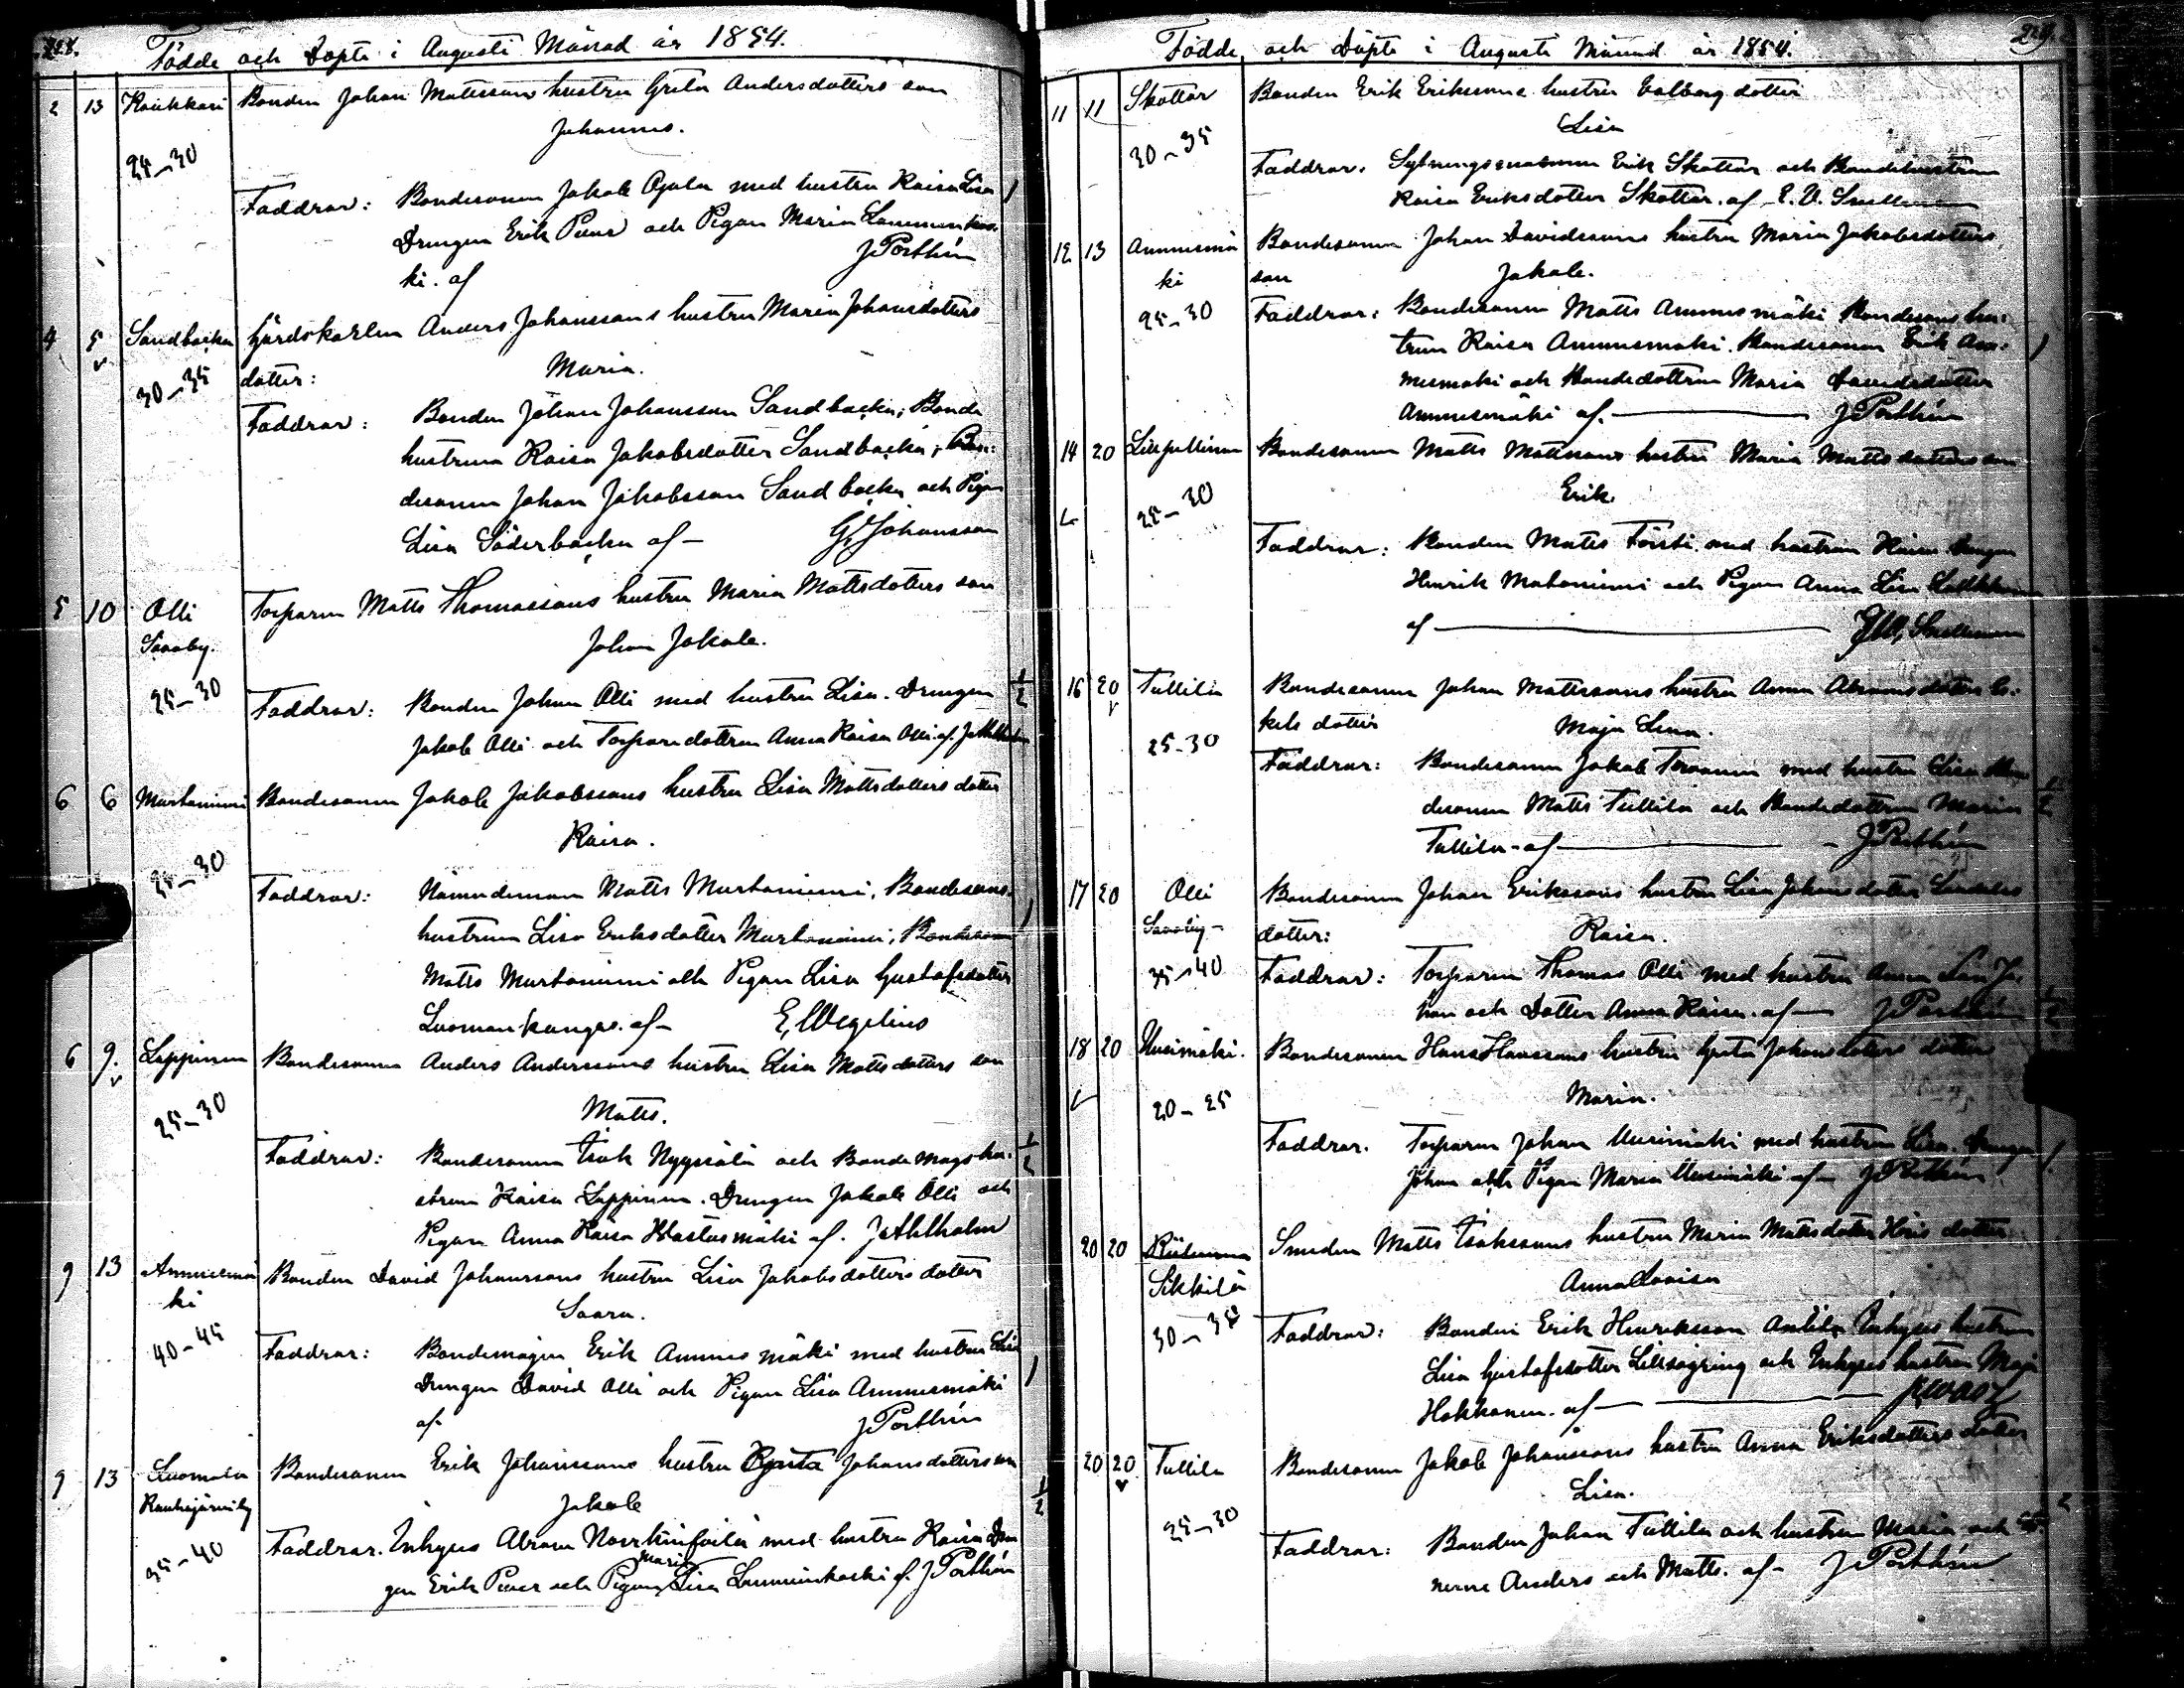 228.
Födde och Döpte i Augusti Månad år 1854.
2 13 Kaukkari Bonden Johan Mattssons hustru Greta Andersdotters son
Johannes.
24-30
Faddrar: Bondesonen Jakob Ojala med hustru Kaisa Lisa
Drengen Erik Puur och Pigan Maria Lammenkos-
ki. af J Porthén
4 5 Sandbacka Gärdskarlen Anders Johanssons hustru Maria Johansdotters
30-35 dotter: Maria.
Faddrar: Bonden Johan Johansson Sandbacka, Bonde
hustrun Kaisa Jakobsdotter Sandbacka, Bon-
desonen Johan Jakobsson Sandbacka och Pigan
Lisa Söderbacka af - G Johansson
5 10 Olli Torparen Matts Thomassons hustru Maria Mattsdotters son
Saaby. Johan Jakob.
25-30
Faddrar: Bonden Johan Olli med hustru Lisa. Drengen 1/2
Jakob Olli och Torparedottren Anna Kaisa Olli af. J Ahlholm
6 6 Murtoniemi Bondesonen Jakob Jakobssons hustru Lisa Mattsdotters dotter
Kaisa.
25-30
Faddrar: Nämndeman Matts Murtoniemi, Bondesons-
hustrun Lisa Eriksdotter Murtoniemi, Bondesonen
Matts Murtoniemi och Pigan Lisa Gustafsdotter
Luomankangas. af - E, Wegelius
6 9. Lappinen Bondesonen Anders Anderssons hustru Lisa Mattsdotters son
Matts.
25-30
Faddrar: Bondesonen Isak Nygsälä och Bondemågshu- 1/2
strun Kaisa Lappinen. Drengen Jakob Olli och
Pigan Anna Kaisa Hastusmäki af. J Ahlholm
9 13 Ammesmä Bonden David Johanssons hustru Lisa Jakobsdotters dotter
ki Saara.
40-45
Faddrar: Bondemågen Erik Ammesmäki med hustru Lisa
Drengen David Olli och Pigan Lisa Ammesmäki
af. J Porthén
9 13 Luomala Bondesonen Erik Johanssons hustru Greta Johansdotters son
Kauhajärviby Jakob 1/2
35-40
Faddrar. Inhyses Abram med hustru Kaisa Dren
Maria
gen Erik Puur och Pigan Lisa Lammenkoski af. J Porthén
Födde och Döpte i Augusti Månad år 1854. 229.
11 11 Skottar Bonden Erik Erikssons hustru Valborg dotter
Lisa
30-35
Faddrar. Sytningsmannen Erik Skottar och Bondehustrun
Kaisa Eriksdotter Skottar. af E. V. Snellman
12 13 Ammesmä Bondesonen Johan Davidssons hustru Maria Jakobsdotters
ki son Jakob.
25-30 Faddrar: Bondesonen Matts Ammesmäki Bondesonshus-
trun Kaisa Ammesmäki. Bondesonen Erik Am-
mesmäki och Bondedottren Maria Davidsdotter
Ammesmäki af. J Porthén
14 20 Lillpullinen Bondesonen Matts Mattssons hustru Maria Mattsdotters son
Erik.
25-30
Faddrar: Bonden Matts Försti med hustrun Kaisa Drengen
Henrik Matoniemi och Pigan Anna Lisa
af Snellman
16 20 Tullila Bondesonen Johan Mattssons hustru Anna Abramsdotter
kels dotter Maja Lena.
25-30
Faddrar: Bondesonen Jakob med hustru Lisa Bon-
desonen Matts Tullila och Bondedottren Maria 1/2
Tullila - af - J Porthén
17 20 Olli Bondesonen Johan Erikssons hustru Lisa Johansdotter
Saaby - dotter: Kaisa.
35-40 Faddrar: Torparen Thomas Olli med hustru Anna Lisa Jo-
han och Dotter Anna Kaisa. af - J Porthén 1/2
18 20 Uusimäki. Bondesonen Hans Hanssons hustru Greta Johansdotters dotter
Maria.
20-25
Faddrar. Torparen Johan Uusimäki med hustrun Lisa. Drengen
Johan och Pigan Maria Uusimäki af - J Porthén
20 20 Smeden Matts Isakssons hustru Maria Mattsdotter dotter
Sikkilä Anna Lovisa
30-35
Faddrar: Bonden Erik Henriksson Antila Inhyses hustrun
Lisa Gustafsdotter och Inhyses hustrun Maja
Hakkonen. af
20 20 Tullila Bondesonen Jakob Johanssons hustru Anna Eriksdotters dotter
Lisa.
25-30
Faddrar: Bonden Johan Tullila och hustrun Maria och Sö-
nerne Anders och Matts. af - J Porthén